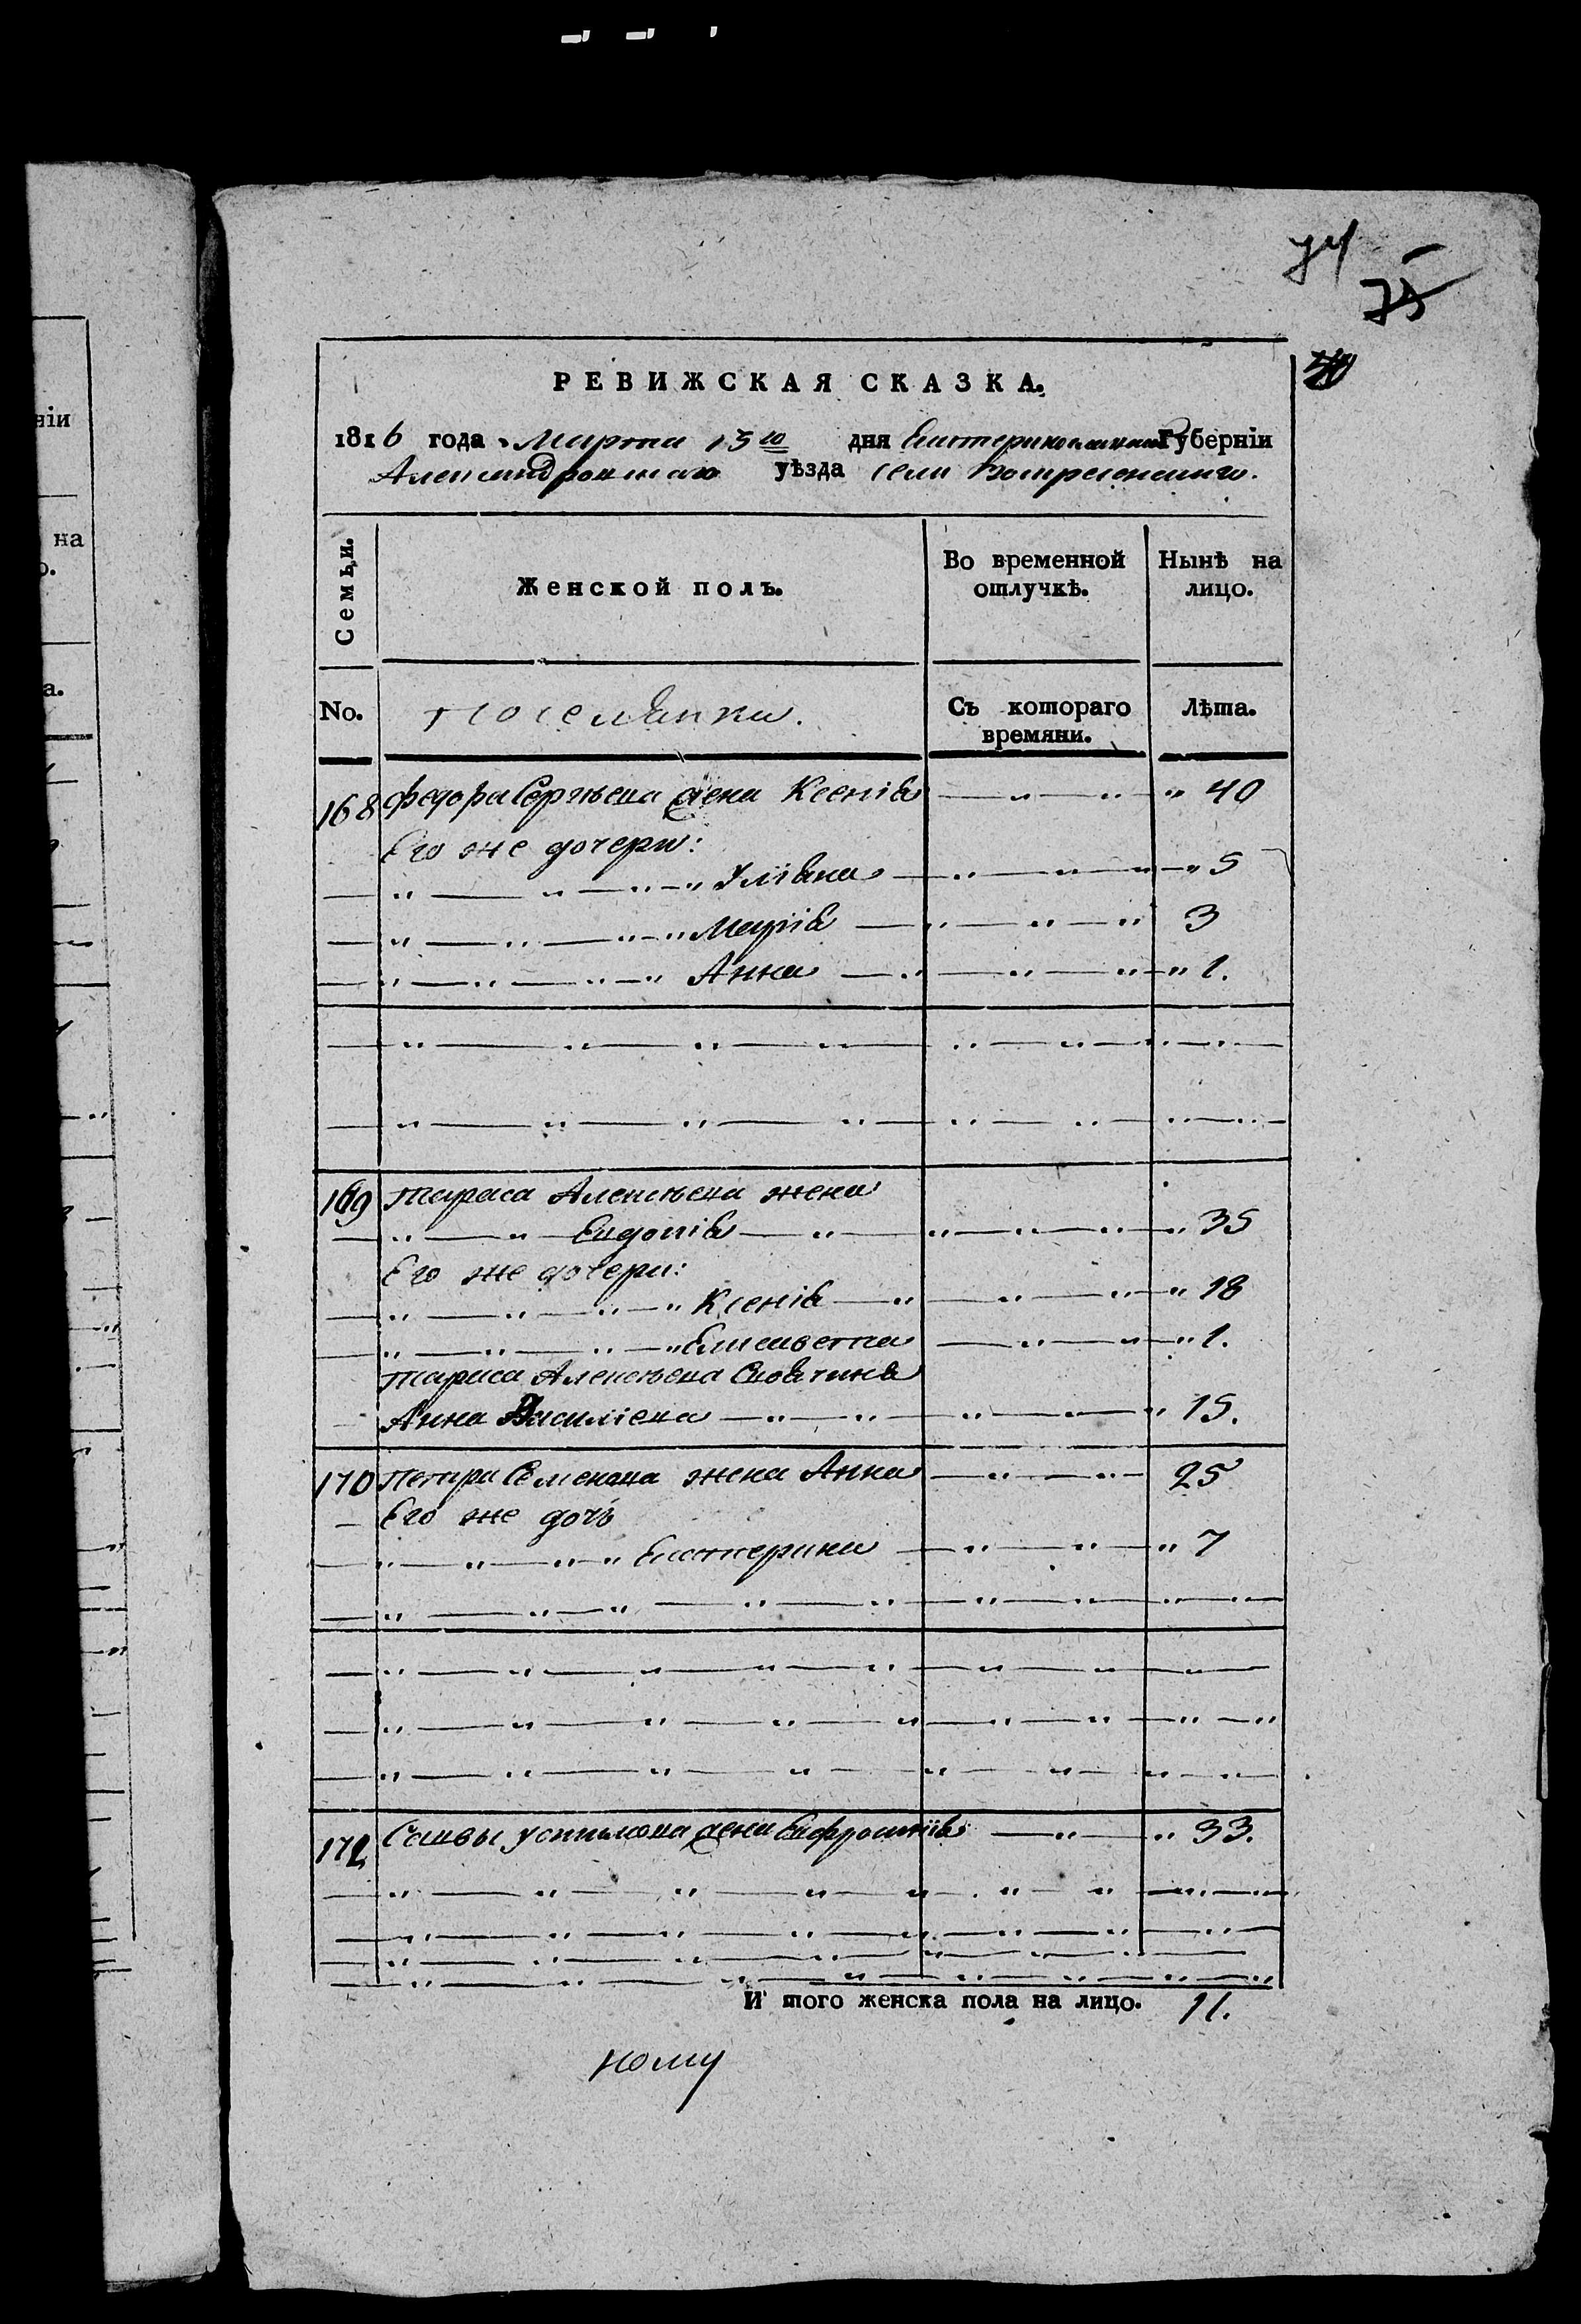 74
75
40
РЕВИЖСКАЯ СКАЗКА.
1816 года Марта 15го дня Екатеринославской Губерніи
Александровскаго уѣзда села Воскресенскаго.
Семьи.
Женской полъ.
Во временной отлучкѣ.
Нынѣ на лицо.
No.
Поселянки.
Съ котораго времяни.
Лѣта.
168 Федора Сергѣева жена Ксенія 40
Его же дочери:
Уліяна 5
Марія 3
Анна 1.
169 Тараса Алексѣева жена
Евдокія 35
Его же дочери:
Ксенія 18
Елисавета 1.
Тараса Алексѣева
Анна Василіева 15.
170 Петра Семенова жена Анна 25
Его же дочь
Екатерина 7
172 Саввы Устимова жена Евфросинія 33.
И того женска пола на лицо. 11.
ному
ніи
на
о.
а.